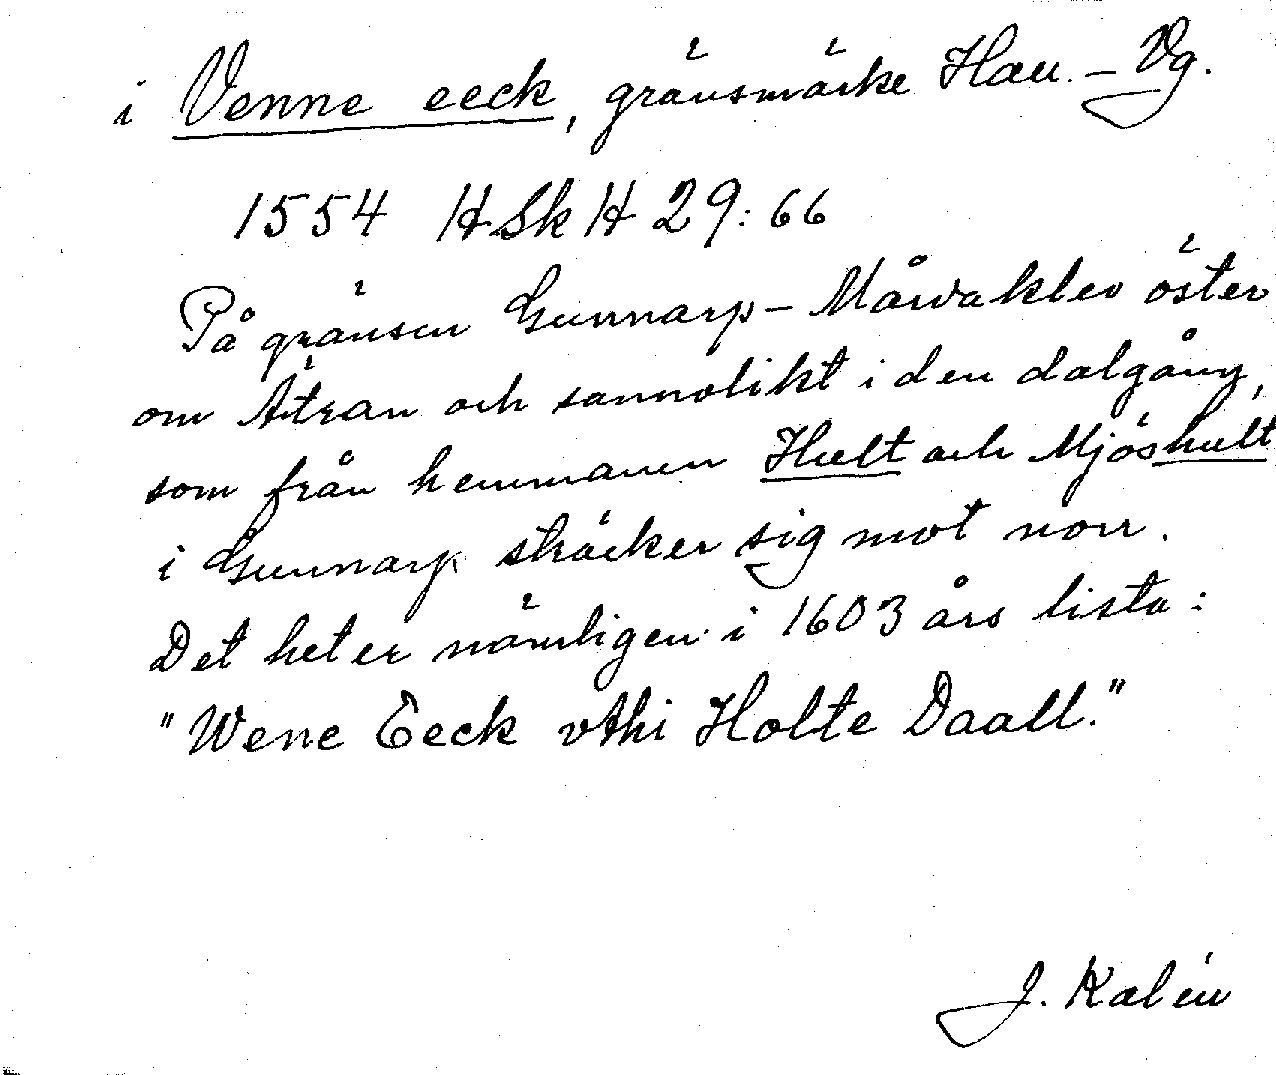 i Venne eeck, gränsmärke Hall. – Vg.
1554 HSkH 29:66
På gränsen Gunnarp – Mårdaklev öster
om Ätran och sannolikt i den dalgång,
som från hemmanen Hult och Mjöshult
i Gunnarp sträcker sig mot norr.
Det heter nämligen i 1603 års lista:
"Wene Eeck vthi Holte Daall."
J. Kalén